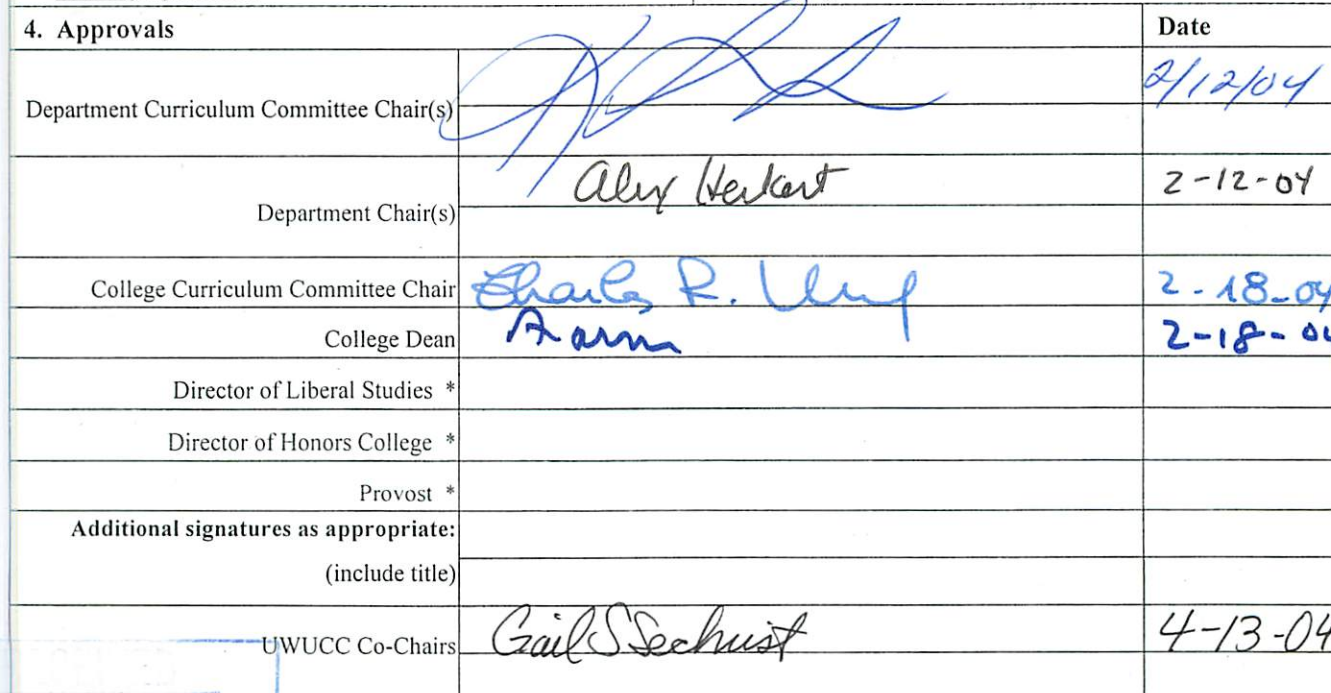 4. Approvals Date
Department Curriculum Committee Chair(s) 2/12/04
Department Chair(s) 2-12-04
College Curriculum Committee Chair Charles R. 2-18-04
College Dean 2-18-
Director of Liberal Studies *
Director of Honors College *
Provost *
Additional signatures as appropriate:
(include title)
UWUCC Co-Chairs Gail S Sechrist 4-13-04